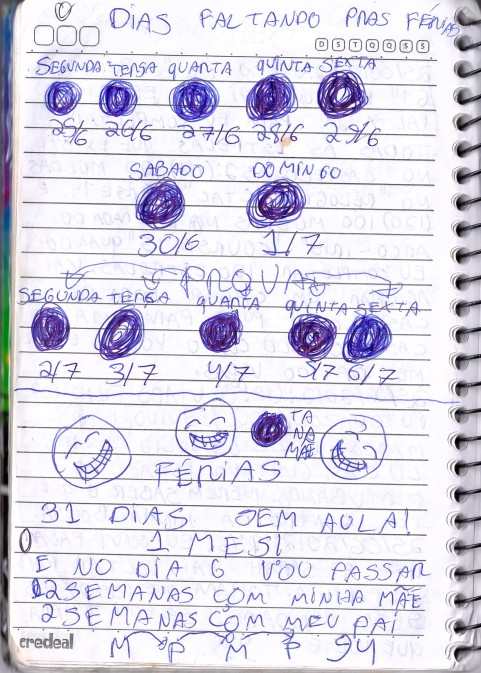 DIAS FALTANDO PRAS FÉRIAS
D S T Q Q S S
SEGUNDA TERSA QUARTA QUINTA SEXTA
25/6 26/6 27/6 28/6 29/6
SABADO DOMINGO
30/6 1/7
PROVAS
SEGUNDA TERSA QUARTA QUINTA SEXTA
2/7 3/7 4/7 5/7 6/7
TA
NA
MÃE
FÉRIAS
31 DIAS SEM AULA!
1 MES!
E NO DIA 6 VOU PASSAR
2 SEMANAS COM MINHA MÃE
2 SEMANAS COM MEU PAI
credeal M P M P